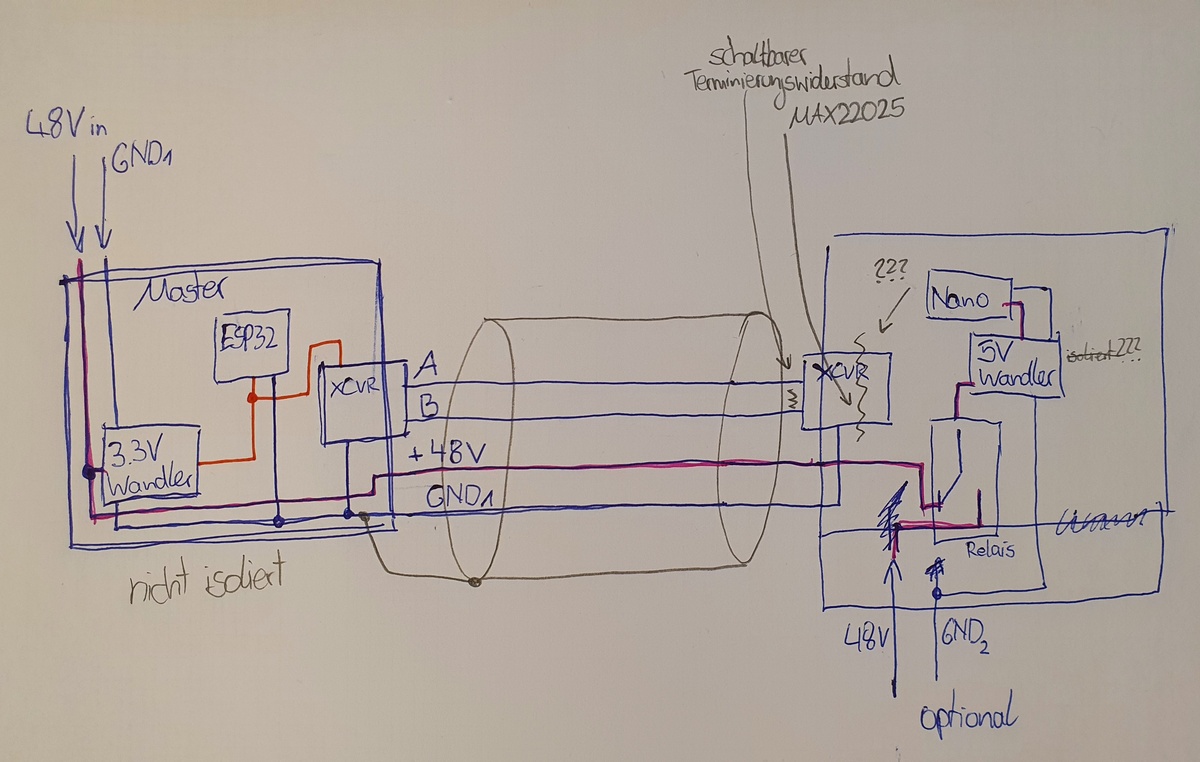 schaltbarer
Terminierungswiderstand
MAX22025
48V in
GND1
Master
ESP32
XCVR
3.3V
Wandler
A
B
+48V
GND1
nicht isoliert
???
Nano
5V
Wandler
isoliert???
XCVR
Relais
48V
GND2
optional